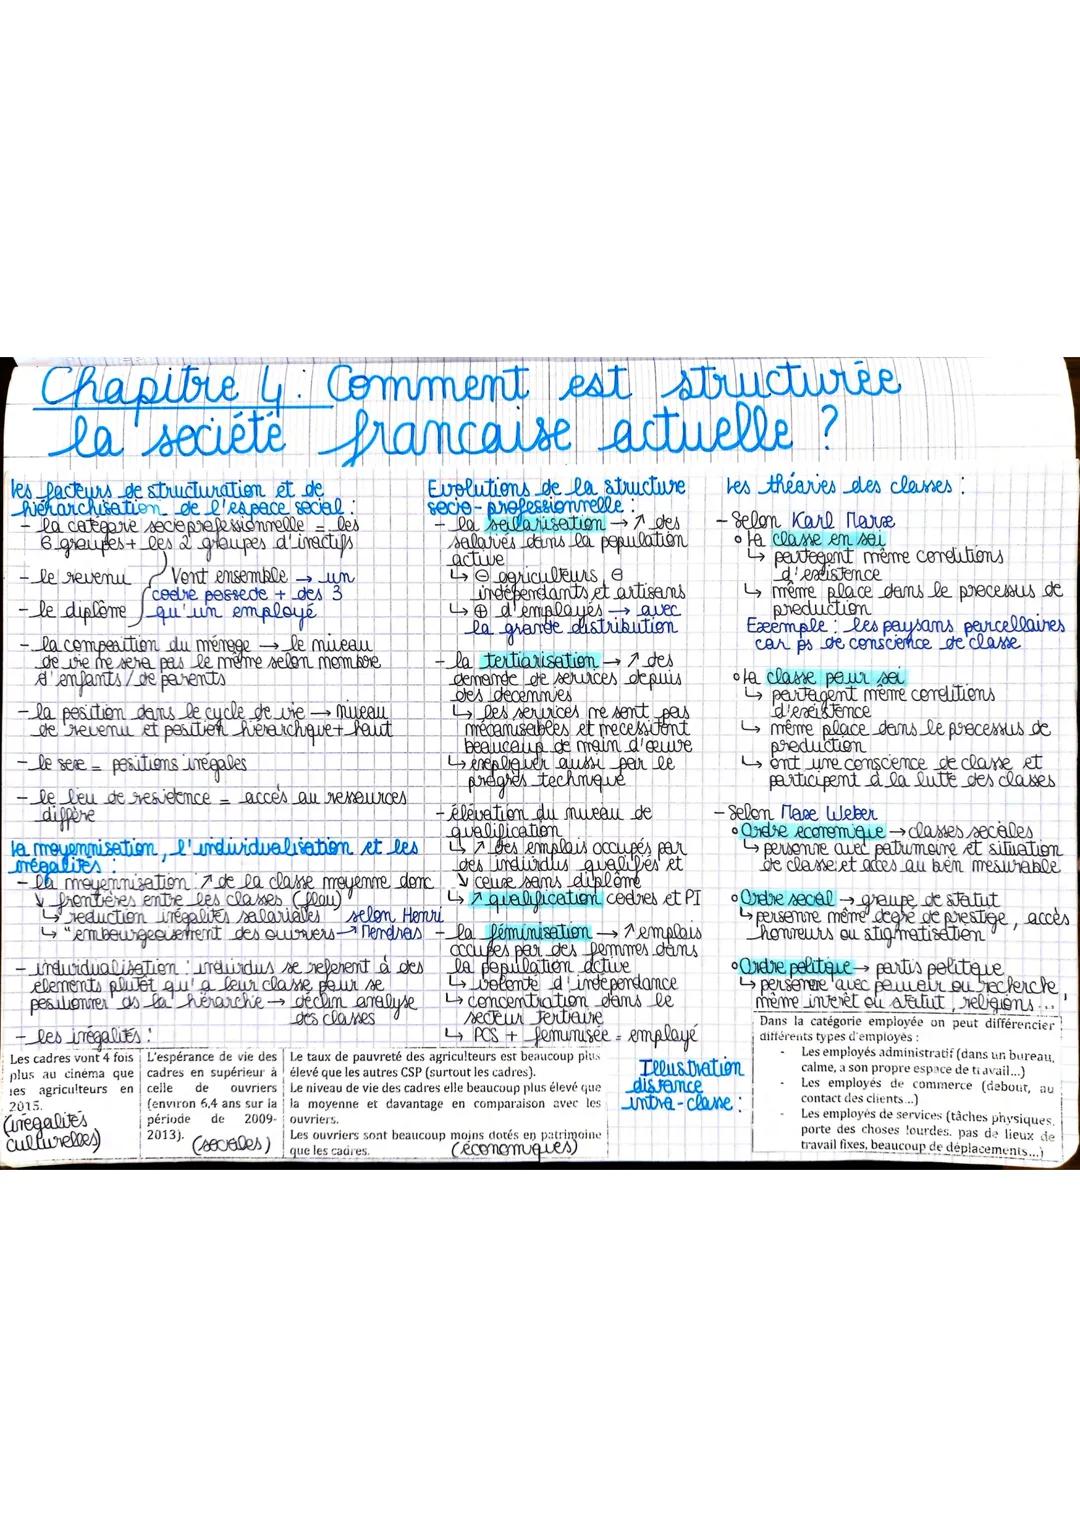 Chapitre 4 : Comment est structurée
la société francaise actuelle ?
Les facteurs de structuration et de
hiérarchisation de l'espace social :
- la catégorie socioprofessionnelle = les
6 groupes + les 2 groupes d'inactifs
- le revenu
- le diplôme
Vont ensemble → un
cadre possède + des 3
qu'un employé
- la composition du ménage → le niveau
de vie ne sera pas le même selon nombre
d'enfants / de parents
- la position dans le cycle de vie → niveau
de revenu et position hiérarchique + haut
- le sexe = positions inégales
- le lieu de residence = accès au ressources
diffère
la moyennisation, l'individualisation et les
inégalités :
- la moyennisation : ↗ de la classe moyenne donc
↘ frontières entre les classes (flou)
↳ reduction inégalités salariales
↳ "embourgeoisement des ouvriers →
selon Henri
Mendras
- individualisation : individus se referent à des
élements plutôt qu'à leur classe pour se
positionner ds la hiérarchie → déclin analyse
des classes
- les inégalités :
Les cadres vont 4 fois
plus au cinéma que
les agriculteurs en
2015.
(inégalités
culturelles)
L'espérance de vie des
cadres en supérieur à
celle de ouvriers
(environ 6,4 ans sur la
période de 2009-
2013).
(sociales)
Le taux de pauvreté des agriculteurs est beaucoup plus
élevé que les autres CSP (surtout les cadres).
Le niveau de vie des cadres elle beaucoup plus élevé que
la moyenne et davantage en comparaison avec les
ouvriers.
Les ouvriers sont beaucoup moins dotés en patrimoine
que les cadres.
(économiques)
Evolutions de la structure
socio-professionnelle :
- la salarisation → ↗ des
salariés dans la population
active
↳ ⊖ agriculteurs, ⊖
indépendants et artisans
↳ ⊕ d'employés → avec
la grande distribution
- la tertiarisation → ↗ des
demande de services depuis
des decennies
↳ les services ne sont pas
mécanisables et necessitent
beaucoup de main d'œuvre
↳ expliquer aussi par le
progrès technique
- élévation du niveau de
qualification
↳ ↗ des emplois occupés par
des individus qualifiés et
↘ ceux sans diplôme
↳ ↗ qualification cadres et PI
- la féminisation → ↗ emplois
occupés par des femmes dans
la population active
↳ volonté d'indépendance
↳ concentration dans le
secteur tertiaire
↳ PCS + feminisée = employé
Illustration
distance
intra-classe :
Les théories des classes :
- Selon Karl Marx
° la classe en soi
↳ partagent même conditions
d'existence
↳ même place dans le processus de
production
Exemple : les paysans parcellaires
car ps de conscience de classe
° la classe pour soi
↳ partagent même conditions
d'existence
↳ même place dans le processus de
production
↳ ont une conscience de classe et
participent à la lutte des classes
- Selon Max Weber
° Ordre économique → classes sociales
↳ personne avec patrimoine et situation
de classe et accès au bien mesurable
° Ordre social → groupe de statut
↳ personne même degré de prestige, accès
honneurs ou stigmatisation
° Ordre politique → partis politique
↳ personne avec pouvoir ou recherche,
même intérêt ou statut, religions...
Dans la catégorie employée on peut différencier
différents types d'employés :
- Les employés administratif (dans un bureau,
calme, a son propre espace de travail...)
- Les employés de commerce (debout, au
contact des clients...)
- Les employés de services (tâches physiques,
porte des choses lourdes, pas de lieux de
travail fixes, beaucoup de déplacements...)